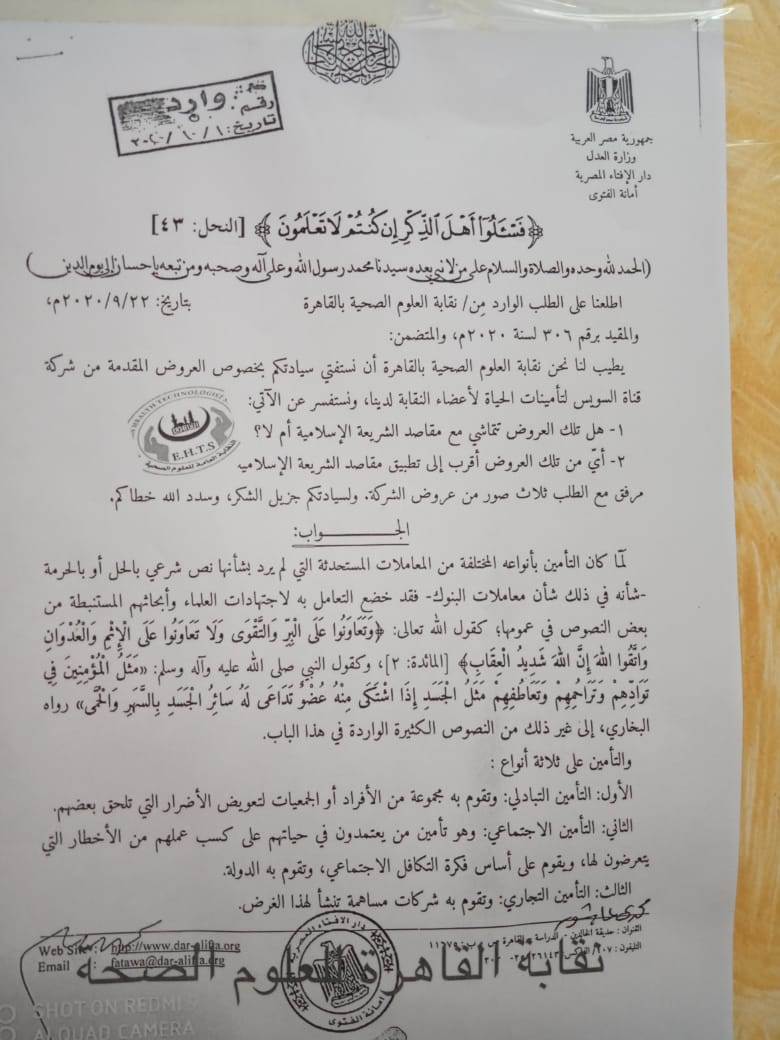 وارد
رقم:
تاريخ: ١ / ١٠ / ٢٠٢٠
جمهورية مصر العربية
وزارة العدل
دار الإفتاء المصرية
أمانة الفتوى
﴿فَسْـَٔلُوٓا۟ أَهْلَ ٱلذِّكْرِ إِن كُنتُمْ لَا تَعْلَمُونَ﴾ [النحل: ٤٣]
(الحمد لله وحده والصلاة والسلام على من لا نبي بعده سيدنا محمد رسول الله وعلى آله وصحبه ومن تبعه بإحسان إلى يوم الدين)
اطلعنا على الطلب الوارد مِن/ نقابة العلوم الصحية بالقاهرة بتاريخ: ٢٠٢٠/٩/٢٢م،
والمقيد برقم ٣٠٦ لسنة ٢٠٢٠م، والمتضمن:
يطيب لنا نحن نقابة العلوم الصحية بالقاهرة أن نستفتي سيادتكم بخصوص العروض المقدمة من شركة
قناة السويس لتأمينات الحياة لأعضاء النقابة لدينا، ونستفسر عن الآتي:
١- هل تلك العروض تتماشي مع مقاصد الشريعة الإسلامية أم لا؟
٢- أيّ من تلك العروض أقرب إلى تطبيق مقاصد الشريعة الإسلامي
HEALTH TECHNOLOGIST
E.H.T.S
النقابة العامة للعلوم الصحية
مرفق مع الطلب ثلاث صور من عروض الشركة. ولسيادتكم جزيل الشكر، وسدد الله خطاكم.
الجـــــــــواب:
لمّا كان التأمين بأنواعه المختلفة من المعاملات المستحدثة التي لم يرد بشأنها نص شرعي بالحل أو بالحرمة
-شأنه في ذلك شأن معاملات البنوك- فقد خضع التعامل به لاجتهادات العلماء وأبحاثهم المستنبطة من
بعض النصوص في عمومها؛ كقول الله تعالى: ﴿وَتَعَاوَنُوا عَلَى الْبِرِّ وَالتَّقْوَى وَلَا تَعَاوَنُوا عَلَى الْإِثْمِ وَالْعُدْوَانِ
وَاتَّقُوا اللهَ إِنَّ اللهَ شَدِيدُ الْعِقَابِ﴾ [المائدة: ٢]، وكقول النبي صلى الله عليه وآله وسلم: «مَثَلُ الْمُؤْمِنِينَ فِي
تَوَادِّهِمْ وَتَرَاحُمِهِمْ وَتَعَاطُفِهِمْ مَثَلُ الْجَسَدِ إِذَا اشْتَكَى مِنْهُ عُضْوٌ تَدَاعَى لَهُ سَائِرُ الْجَسَدِ بِالسَّهَرِ وَالْحُمَّى» رواه
البخاري، إلى غير ذلك من النصوص الكثيرة الواردة في هذا الباب.
والتأمين على ثلاثة أنواع :
الأول: التأمين التبادلي: وتقوم به مجموعة من الأفراد أو الجمعيات لتعويض الأضرار التي تلحق بعضهم.
الثاني: التأمين الاجتماعي: وهو تأمين من يعتمدون في حياتهم على كسب عملهم من الأخطار التي
يتعرضون لها، ويقوم على أساس فكرة التكافل الاجتماعي، وتقوم به الدولة.
الثالث: التأمين التجاري: وتقوم به شركات مساهمة تنشأ لهذا الغرض.
العنوان: حديقة الخالدين - الدراسة - القاهرة ص . ب ١١٦٧٥
Web Site : http://www.dar-alifta.org
Email : fatawa@dar-alifta.org
دار الإفتاء المصرية
أمانة الفتوى
نقابة القاهرة للعلوم الصحه
SHOT ON REDMI 9
AI QUAD CAMERA